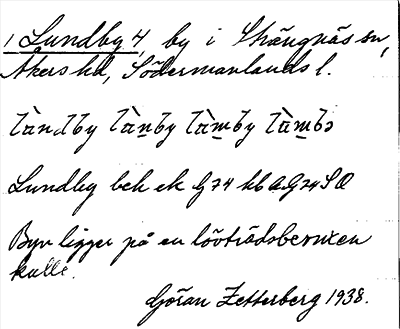 1 Lundby 4, by i Strängnäs sn,
Åkers hd, Södermanlands l.
Lundby bek ek G74 hb AG74SO
Byn ligger på en lövträdsbevuxen
kulle.
Göran Zetterberg 1938.